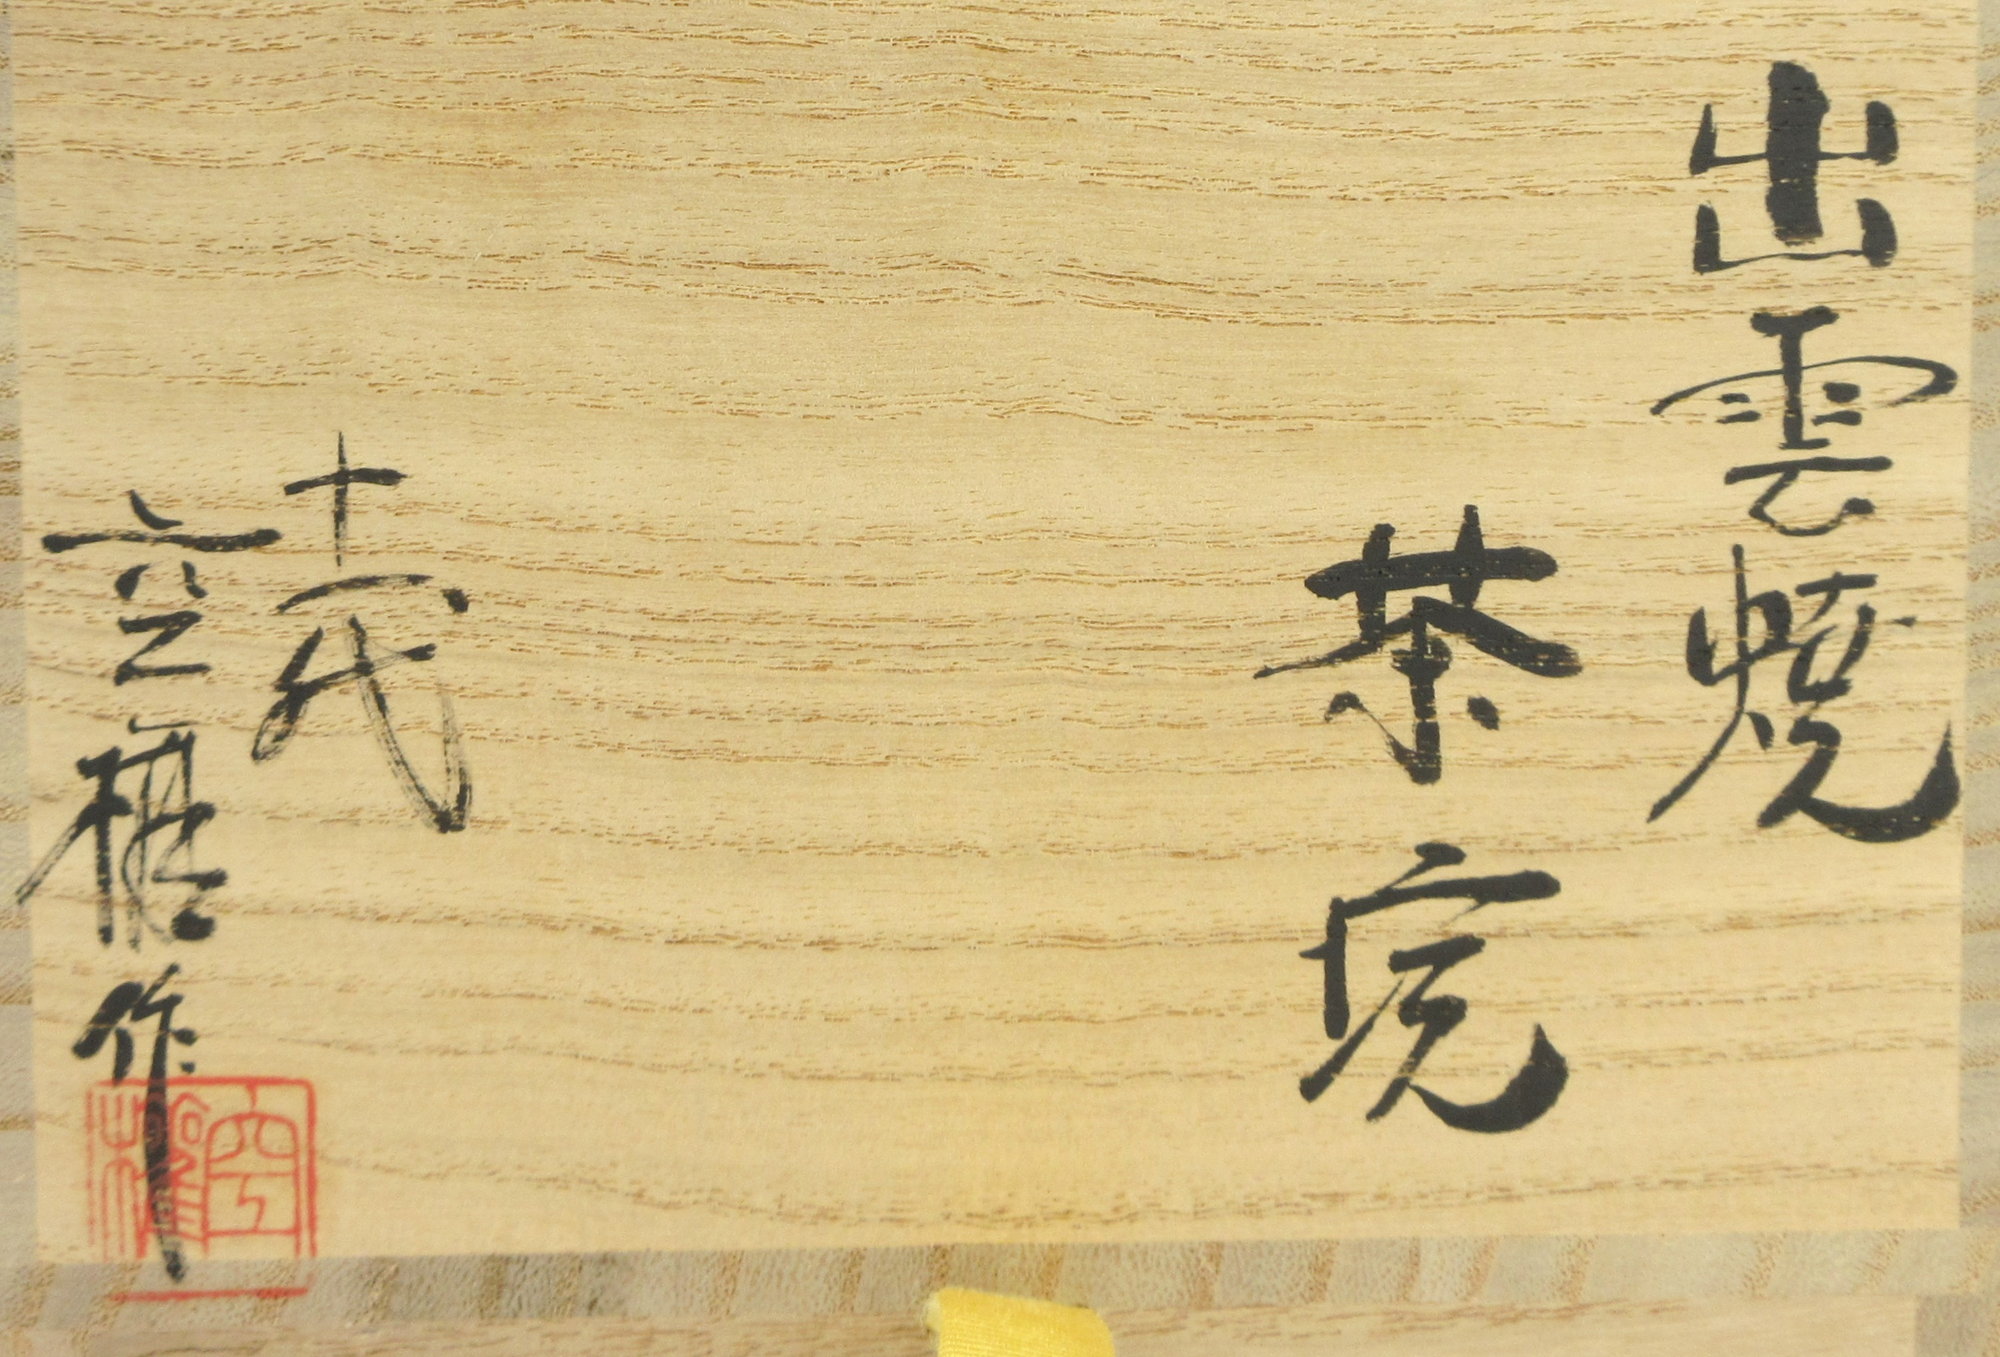 出雲焼
茶碗
十代
空権作
空権